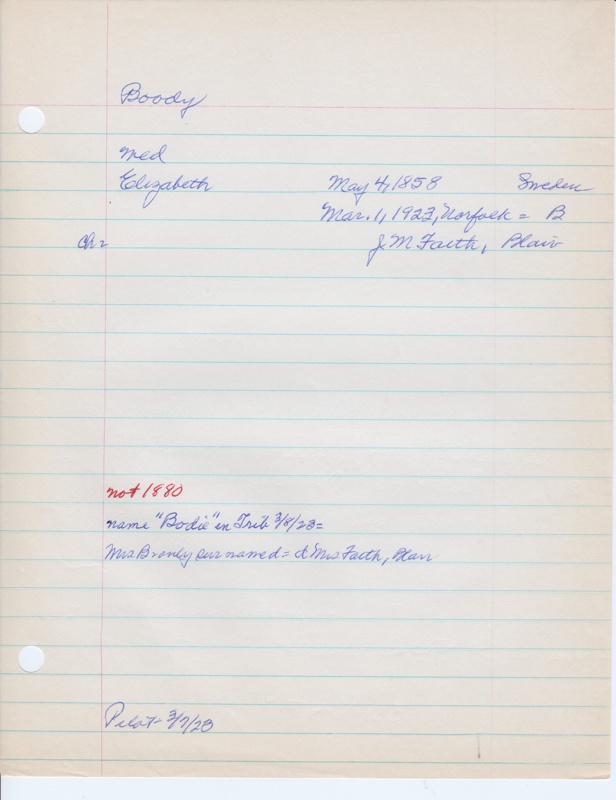 Boody
med
Elizabeth May 4, 1858 Sweden
Mar. 1, 1923, Norfolk = B
Ch = J M Faith, Blair
not 1880
name "Bodie" in Trib 3/8/23 =
Mrs sur named = d Mrs Faith, Blair
Pilot - 3/7/23